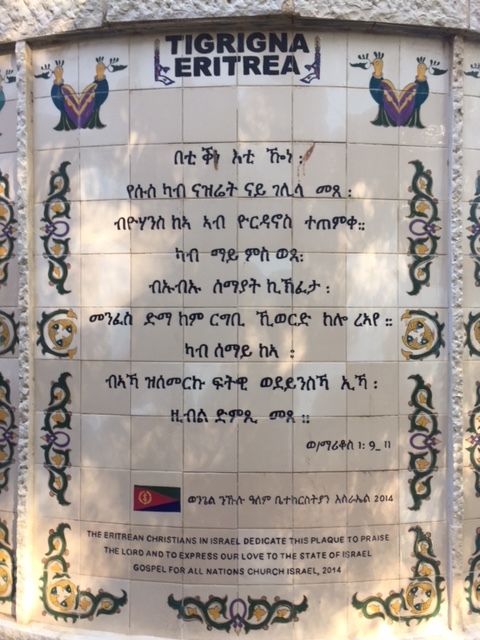 TIGRIGNA
ERITREA
በቲ ቕኑ እቲ ኾነ ፡
የሱስ ካብ ናዝሬት ናይ ገሊላ መጺ ፡
ብዮሃንስ ከኣ ኣብ ዮርዳኖስ ተጠምቀ።
ካብ ማይ ምስ ወጸ፡
ብኡብኡ ሰማያት ኪኽፈታ ፡
መንፈስ ድማ ከም ርግቢ ኺወርድ ከሎ ረኣየ ።
ካብ ሰማይ ከኣ ፡
ብኣኻ ዝሰመርኩ ፍትዊ ወደይንስኻ ኢኻ ፡
ዚብል ድምጺ መጸ ።
ወ/ማሪቆስ ፩፡ 9_ 11
ወንጌል ንኹሉ ዓለም ቤተክርስትያን እስራኤል 2014
THE ERITREAN CHRISTIANS IN ISRAEL DEDICATE THIS PLAQUE TO PRAISE
THE LORD AND TO EXPRESS OUR LOVE TO THE STATE OF ISRAEL
GOSPEL FOR ALL NATIONS CHURCH ISRAEL, 2014